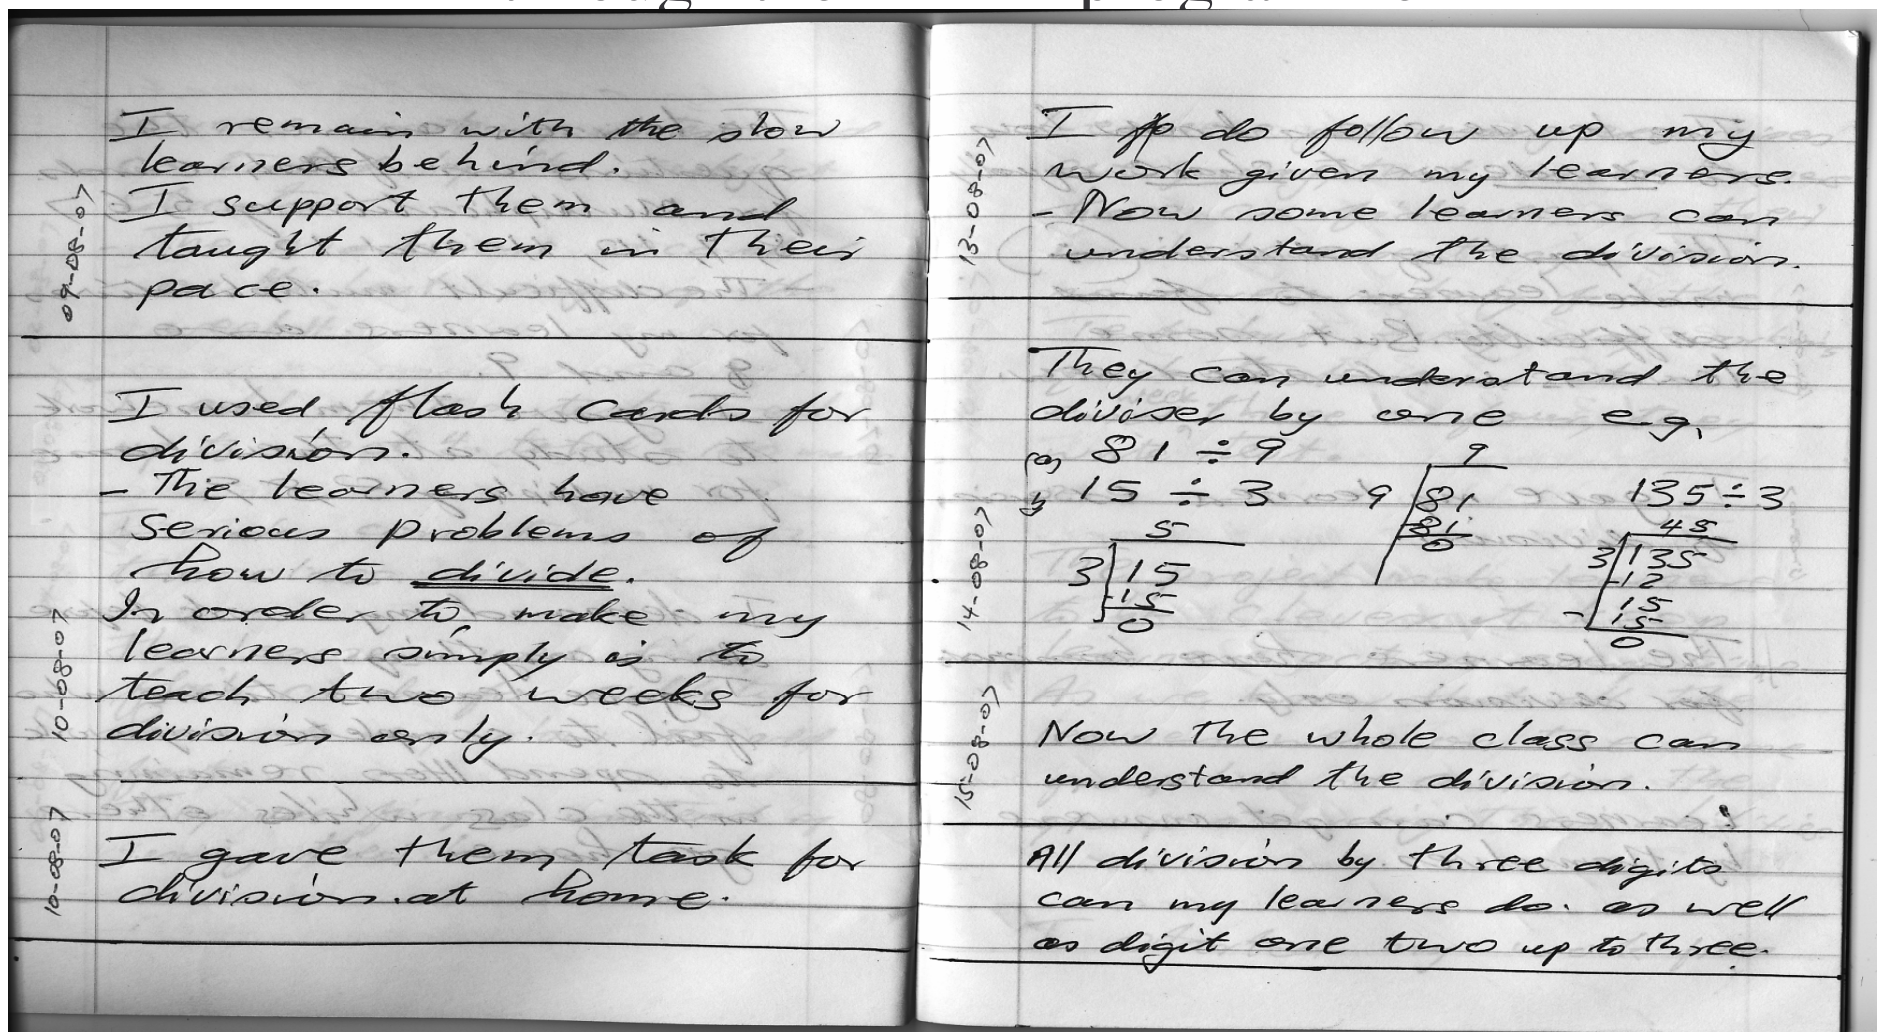 I remain with the slow
learners behind.
I support them and
taught them in their
pace.
09-08-07
I used flash cards for
division.
- The learners have
serious problems of
how to divide.
In order to make my
learners simply is to
teach two weeks for
division only.
10-08-07
I gave them task for
division at home.
10-08-07
I do follow up my
work given my learners.
- Now some learners can
understand the division.
13-08-07
They can understand the
diviser by one e.g.
81 ÷ 9
15 ÷ 3
5
3 15
-15
0
9
9 81
81
0
135 ÷ 3
45
3 135
-12
15
- 15
0
14-08-07
Now the whole class can
understand the division.
15-08-07
All division by three digits
can my learners do. as well
as digit one two up to three.